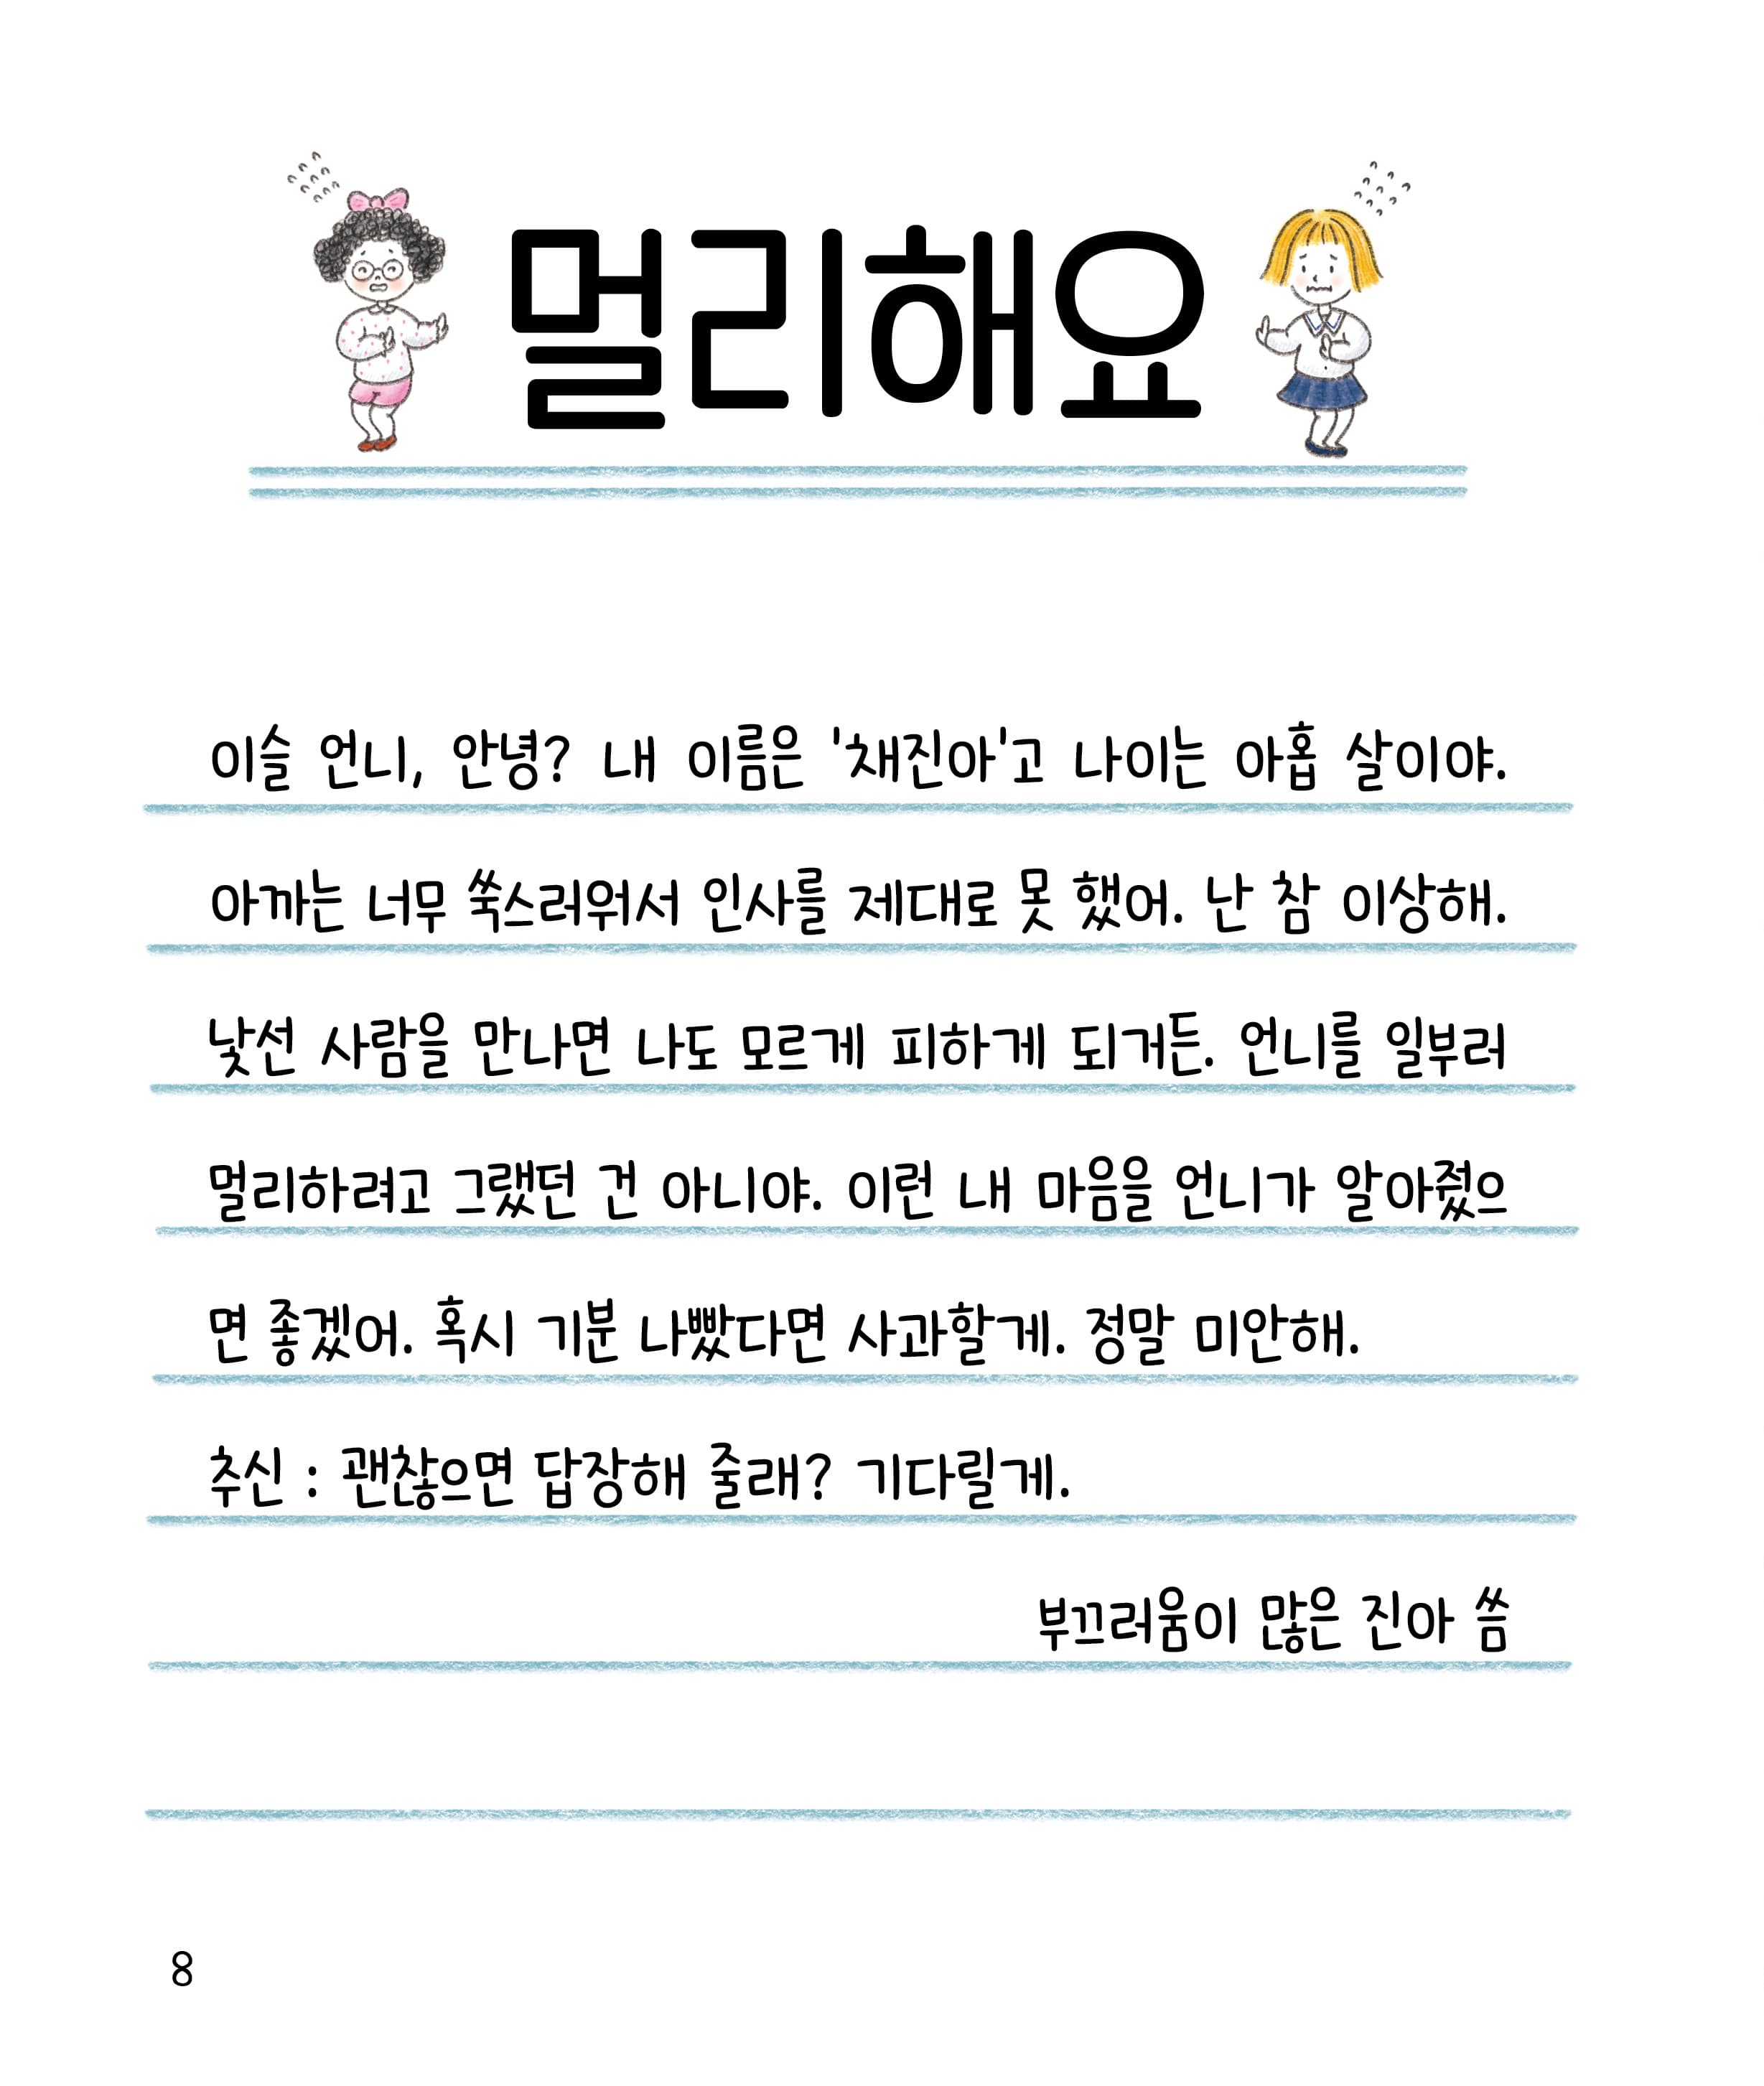 멀리해요
이슬 언니, 안녕? 내 이름은 '채진아'고 나이는 아홉 살이야.
아까는 너무 쑥스러워서 인사를 제대로 못 했어. 난 참 이상해.
낯선 사람을 만나면 나도 모르게 피하게 되거든. 언니를 일부러
멀리하려고 그랬던 건 아니야. 이런 내 마음을 언니가 알아줬으
면 좋겠어. 혹시 기분 나빴다면 사과할게. 정말 미안해.
추신 : 괜찮으면 답장해 줄래? 기다릴게.
부끄러움이 많은 진아 씀
8